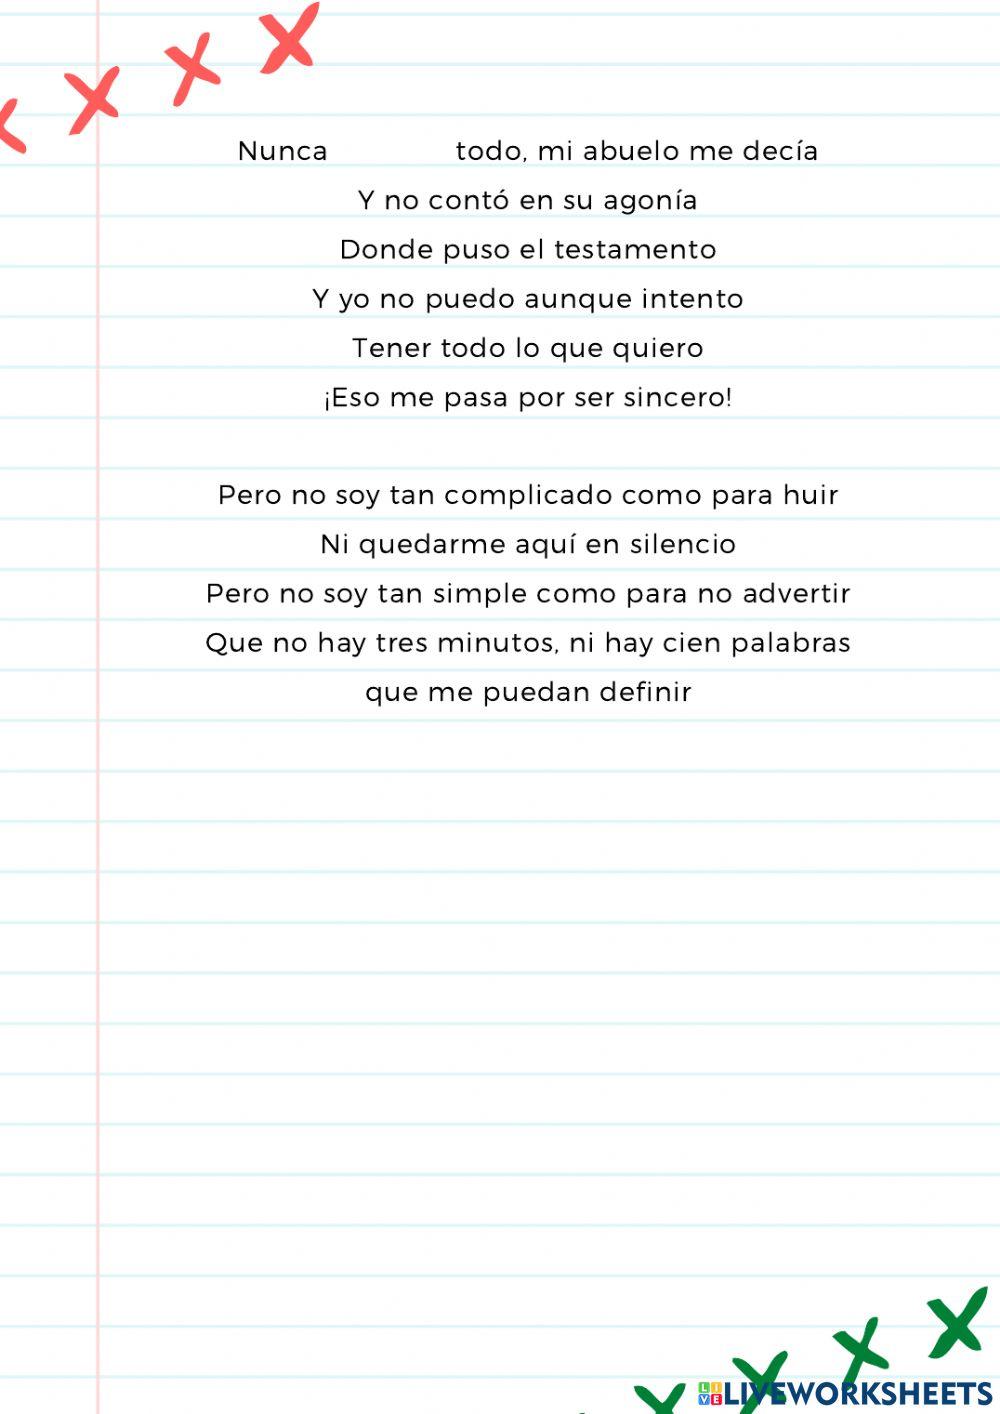 Nunca todo, mi abuelo me decía
Y no contó en su agonía
Donde puso el testamento
Y yo no puedo aunque intento
Tener todo lo que quiero
¡Eso me pasa por ser sincero!
Pero no soy tan complicado como para huir
Ni quedarme aquí en silencio
Pero no soy tan simple como para no advertir
Que no hay tres minutos, ni hay cien palabras
que me puedan definir
LIVEWORKSHEETS